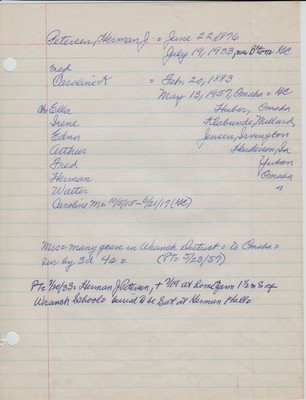 Petersen, Herman J. = June 22, 1876
July 19, 1933, near B'town HC
med
Caroline K = Feb. 20, 1883
May 13, 1957, Omaha = HC
Ch Ella Huber, Omaha
Irene Klabunde, Millard
Edna Jensen, Irvington
Arthur Henderson, Ia
Fred Yutan
Herman Omaha
Walter "
Caroline M = 10/5/15 - 6/21/17 (HC)
Mrs = many years in Wranch District = to Omaha =
Sur by 3d 4s = (PT = 5/23/57)
PT = 7/20/33: Herman J Petersen, + 7/19 at home farm 1½ m S of
Wranch School = burial to be Sat at Herman Hello